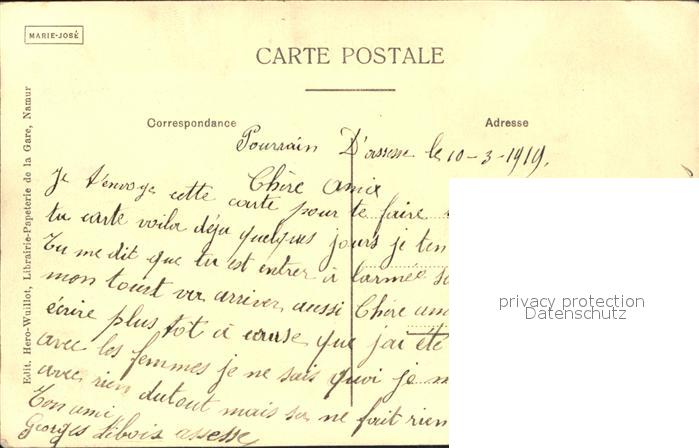 MARIE-JOSÉ
CARTE POSTALE
Correspondance
Adresse
Edit. Hero-Wuillot, Librairie-Papeterie de la Gare, Namur
Poursain D'assesse le 10-3-1919.
Chère amie
Je t'envoye cette carte pour te faire
tu carte voila déja quelques jours je ten
Tu me dit que tu est entrer à l'armée
mon tourt va arriver aussi Chère ami
écrire plus tot à cause que j'ai été
avec les femmes je ne sais quoi je m
avec rien dutout mais sa ne fait rien
Ton ami
Georges Libois assesse
privacy protection
Datenschutz